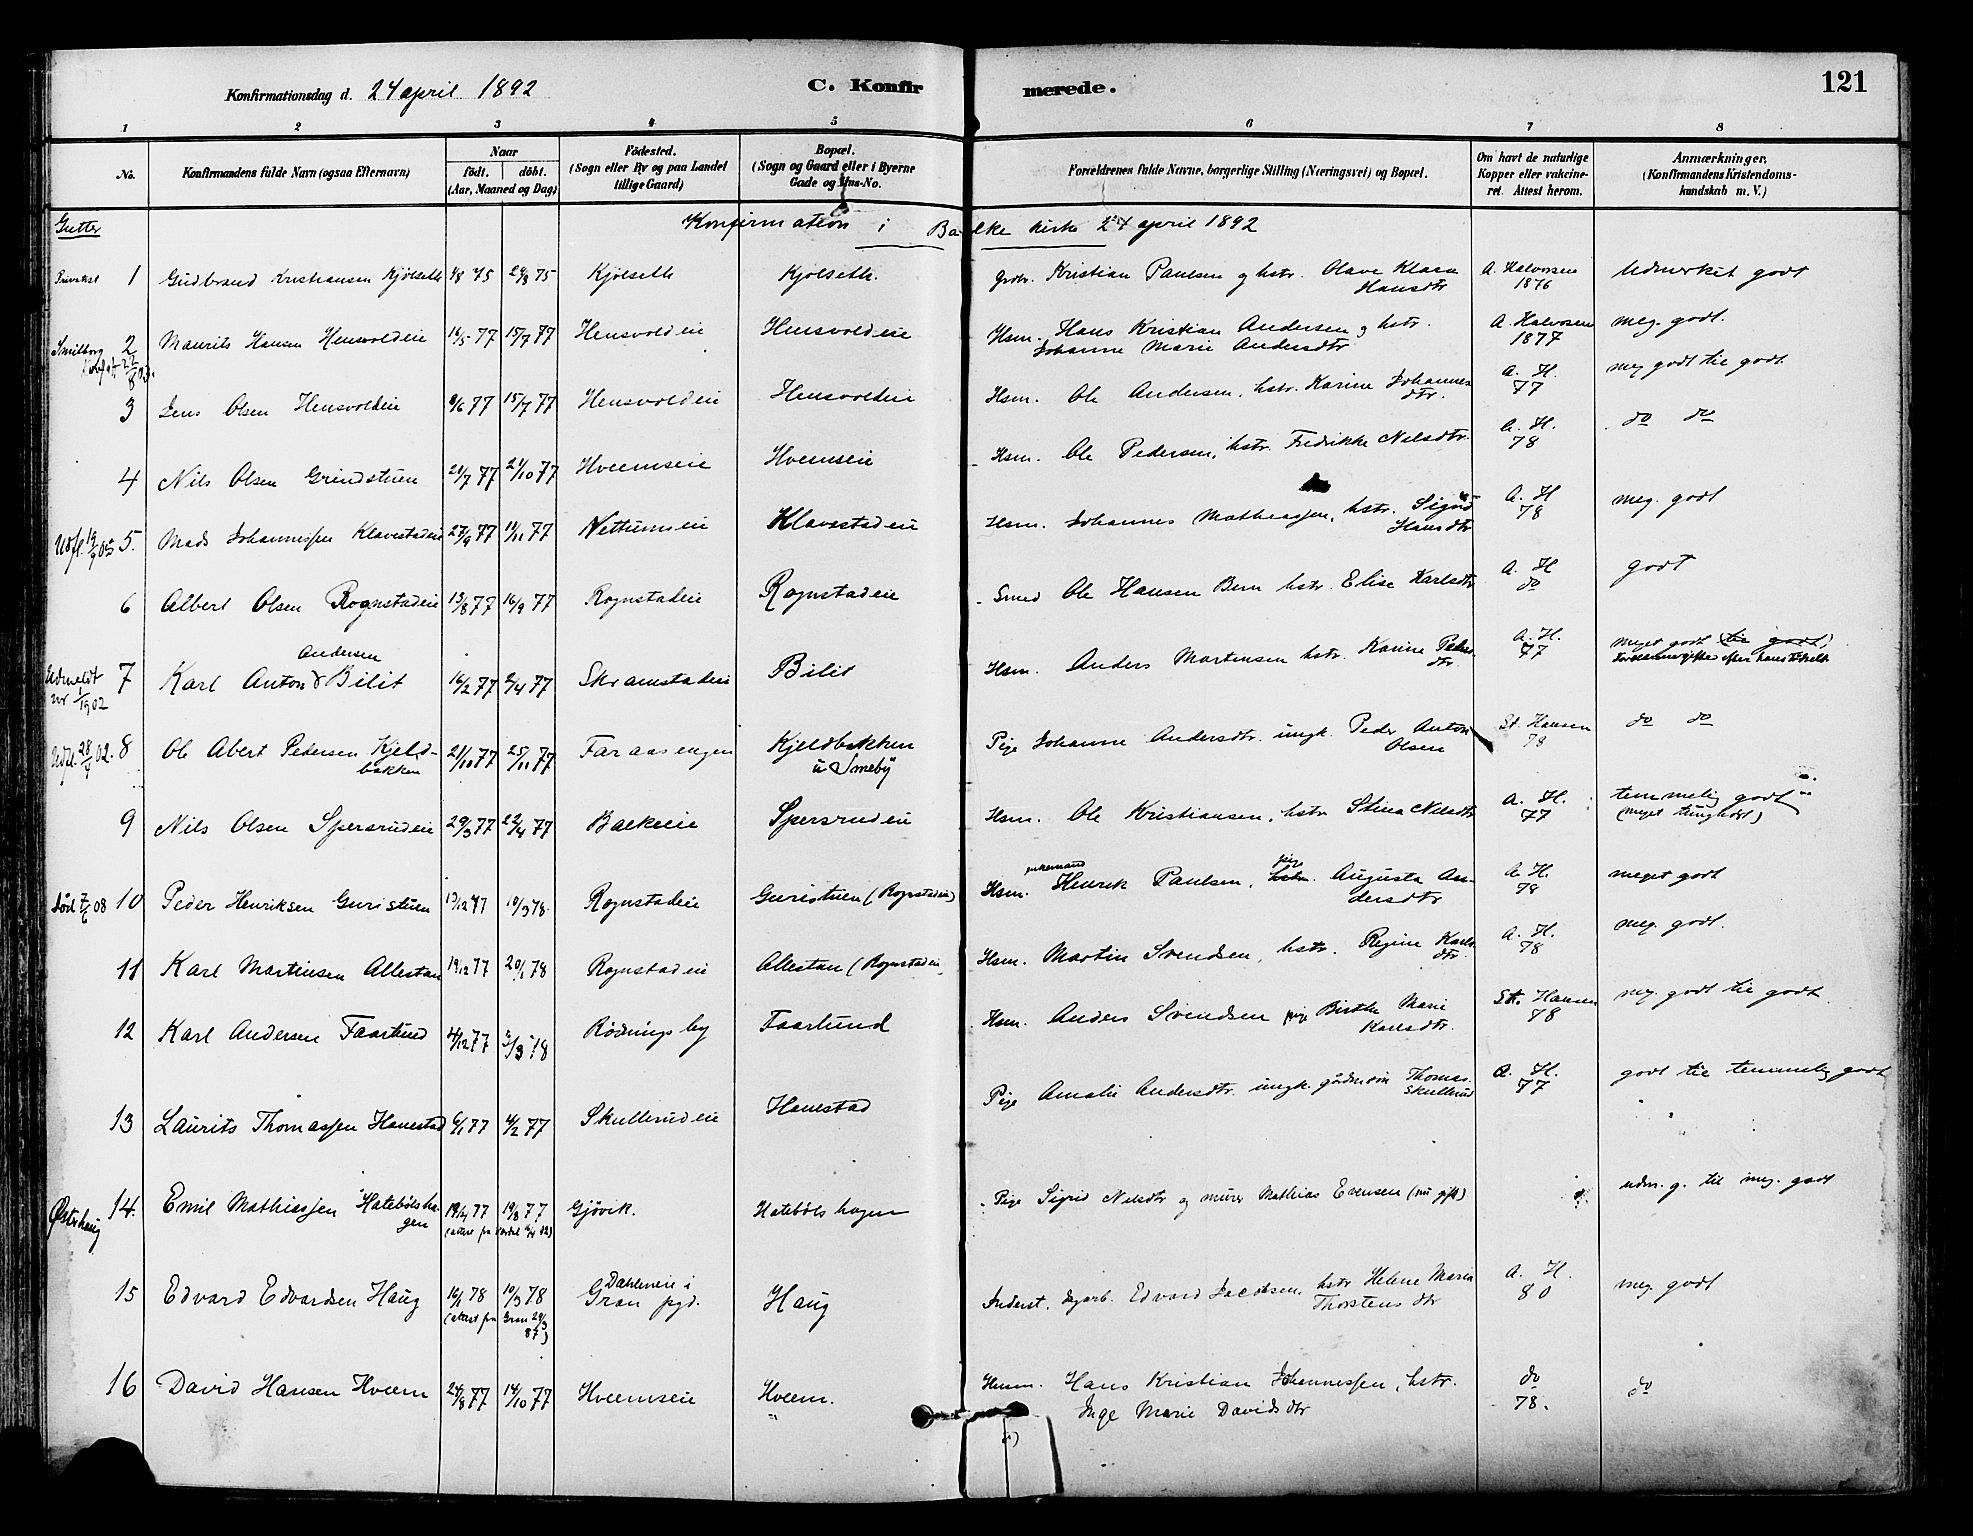 Konfirmationsdag d. 24 april 1892
C. Konfirmerede.
121
1 2 3 4 5 6 7 8
No. Konfirmandens fulde Navn (ogsaa Efternavn) Naar födt. döbt. (Aar, Maaned og Dag) Födested. (Sogn eller By og paa Landet tillige Gaard) Bopæl. (Sogn og Gaard eller i Byerne Gade og Hus-No. Forældrenes fulde Navne, borgerlige Stilling (Næringsvei) og Bopæl. Om havt de naturlige Kopper eller vakcineret. Attest herom. Anmærkninger. (Konfirmandens Kristendomskundskab m. V.)
Gutter
Konfirmation i Balke kirke 24 april 1892
1 Gudbrand Kristiansen Kjölseth 1/8 75 29/8 75 Kjölseth Kjölseth. Grdbr. Kristian Paulsen og hstr. Olave Klara Hansdtr A. Halvorsen 1876 Udmerket godt
2 Maurits Hansen Hensvoldeie 16/5 77 15/7 77 Hensvoldeie Hensvoldeie Hsm. Hans Kristian Andersen og hstr. Johanne Marie Andersdtr A. Halvorsen 1877 meg. godt.
3 Jens Olsen Hensvoldeie 9/6 77 15/7 77 Hensvoldeie Hensvoldeie Hsm. Ole Andersen, hstr. Karine Johannesdtr. A. H. 77 meg godt til godt.
4 Nils Olsen Grindstuen 20/7 77 21/10 77 Hveemseie Hveemseie Hsm. Ole Pedersen, hstr. Fredrikke Nilsdtr. A. H. 78 do do
Udfl. 19/9 03 5. Mads Johannessen Klavestadeie 27/9 77 11/11 77 Nettumseie Klavestadeie Hsm. Johannes Mathiassen, hstr. Sigrid Hansdtr A. H 78 meg. godt
6 Albert Olsen Rognstadeie 15/8 77 16/9 77 Rognstadeie Rognstadeie Smed Ole Hansen Bern hstr. Elise Karlsdtr A. H do godt
Udmeldt 1/1902 7 Karl Anton Andersen Bilit 16/2 77 2/4 77 Skramstadeie Bilit Hsm. Anders Martensen hstr. Karine Pedersdtr A. H. 77 meget godt til godt
Udfl. 28/4 02. 8 Ole Abert Pedersen Kjeldbakken 21/10 77 25/11 77 Faraasengen Kjeldbakken u Smeby Pige Johanne Andersdtr. ungk. Peder Anton Olsen St. Hansen 78 do do
9 Nils Olsen Spersrudeie 29/3 77 22/4 77 Balkeeie Spersrudeie Hsm. Ole Kristiansen, hstr Stina Nilsdtr A. H. 77 temmelig godt (meget tunghørt)
Död 7/6 08 10 Peder Henriksen Guristuen 17/12 77 10/3 78. Rognstadeie Guristuen (Rognstadeie) Hsm. enkemand Henrik Paulsen, hstr. pige Augusta Andersdtr A. H. 78 meget godt
11 Karl Martinsen Allestan 19/12 77 20/1 78 Rognstadeie Allestan (Rognstadeie Hsm. Martin Svendsen, hstr. Regine Karlsdtr. A. H. 78 meg. godt.
12 Karl Andersen Faarlund 4/12 77 3/3 78 Rödningsby Faarlund Hsm. Anders Svendsen pige Birthe Marie Karlsdtr. St. Hansen 78 meg. godt til godt.
13 Laurits Thomassen Hanestad 6/1 77 4/2 77 Skullerudeie Hanestad Pige Amalie Andersdtr. ungk. gårdmsön Thomas Skullerud A. H. 77 godt til temmelig godt
Østerhaug 14. Emil Mathiassen Hatebölshagen 19/4 77 19/8 77 Gjövik. Hatebölshagen Pige Sigrid Nilsdtr og murer Mathias Evensen (nu gift) udm. g. til meg. godt
15 Edvard Edvardsen Haug 16/1 78 10/3 78 (attest fra Gran 29/3 87) Dahleneie i Gran pgd. Haug Inderst, dagarb. Edvard Jacobsen, hstr Helene Maria Thorstensdtr A. H. 80 meg. godt
16 David Hansen Hveem 24/8 77 14/10 77 Hveemseie Hveem. Husm. Hans Kristian Johannessen, hstr. Inge Marie Davidsdtr do 78. do